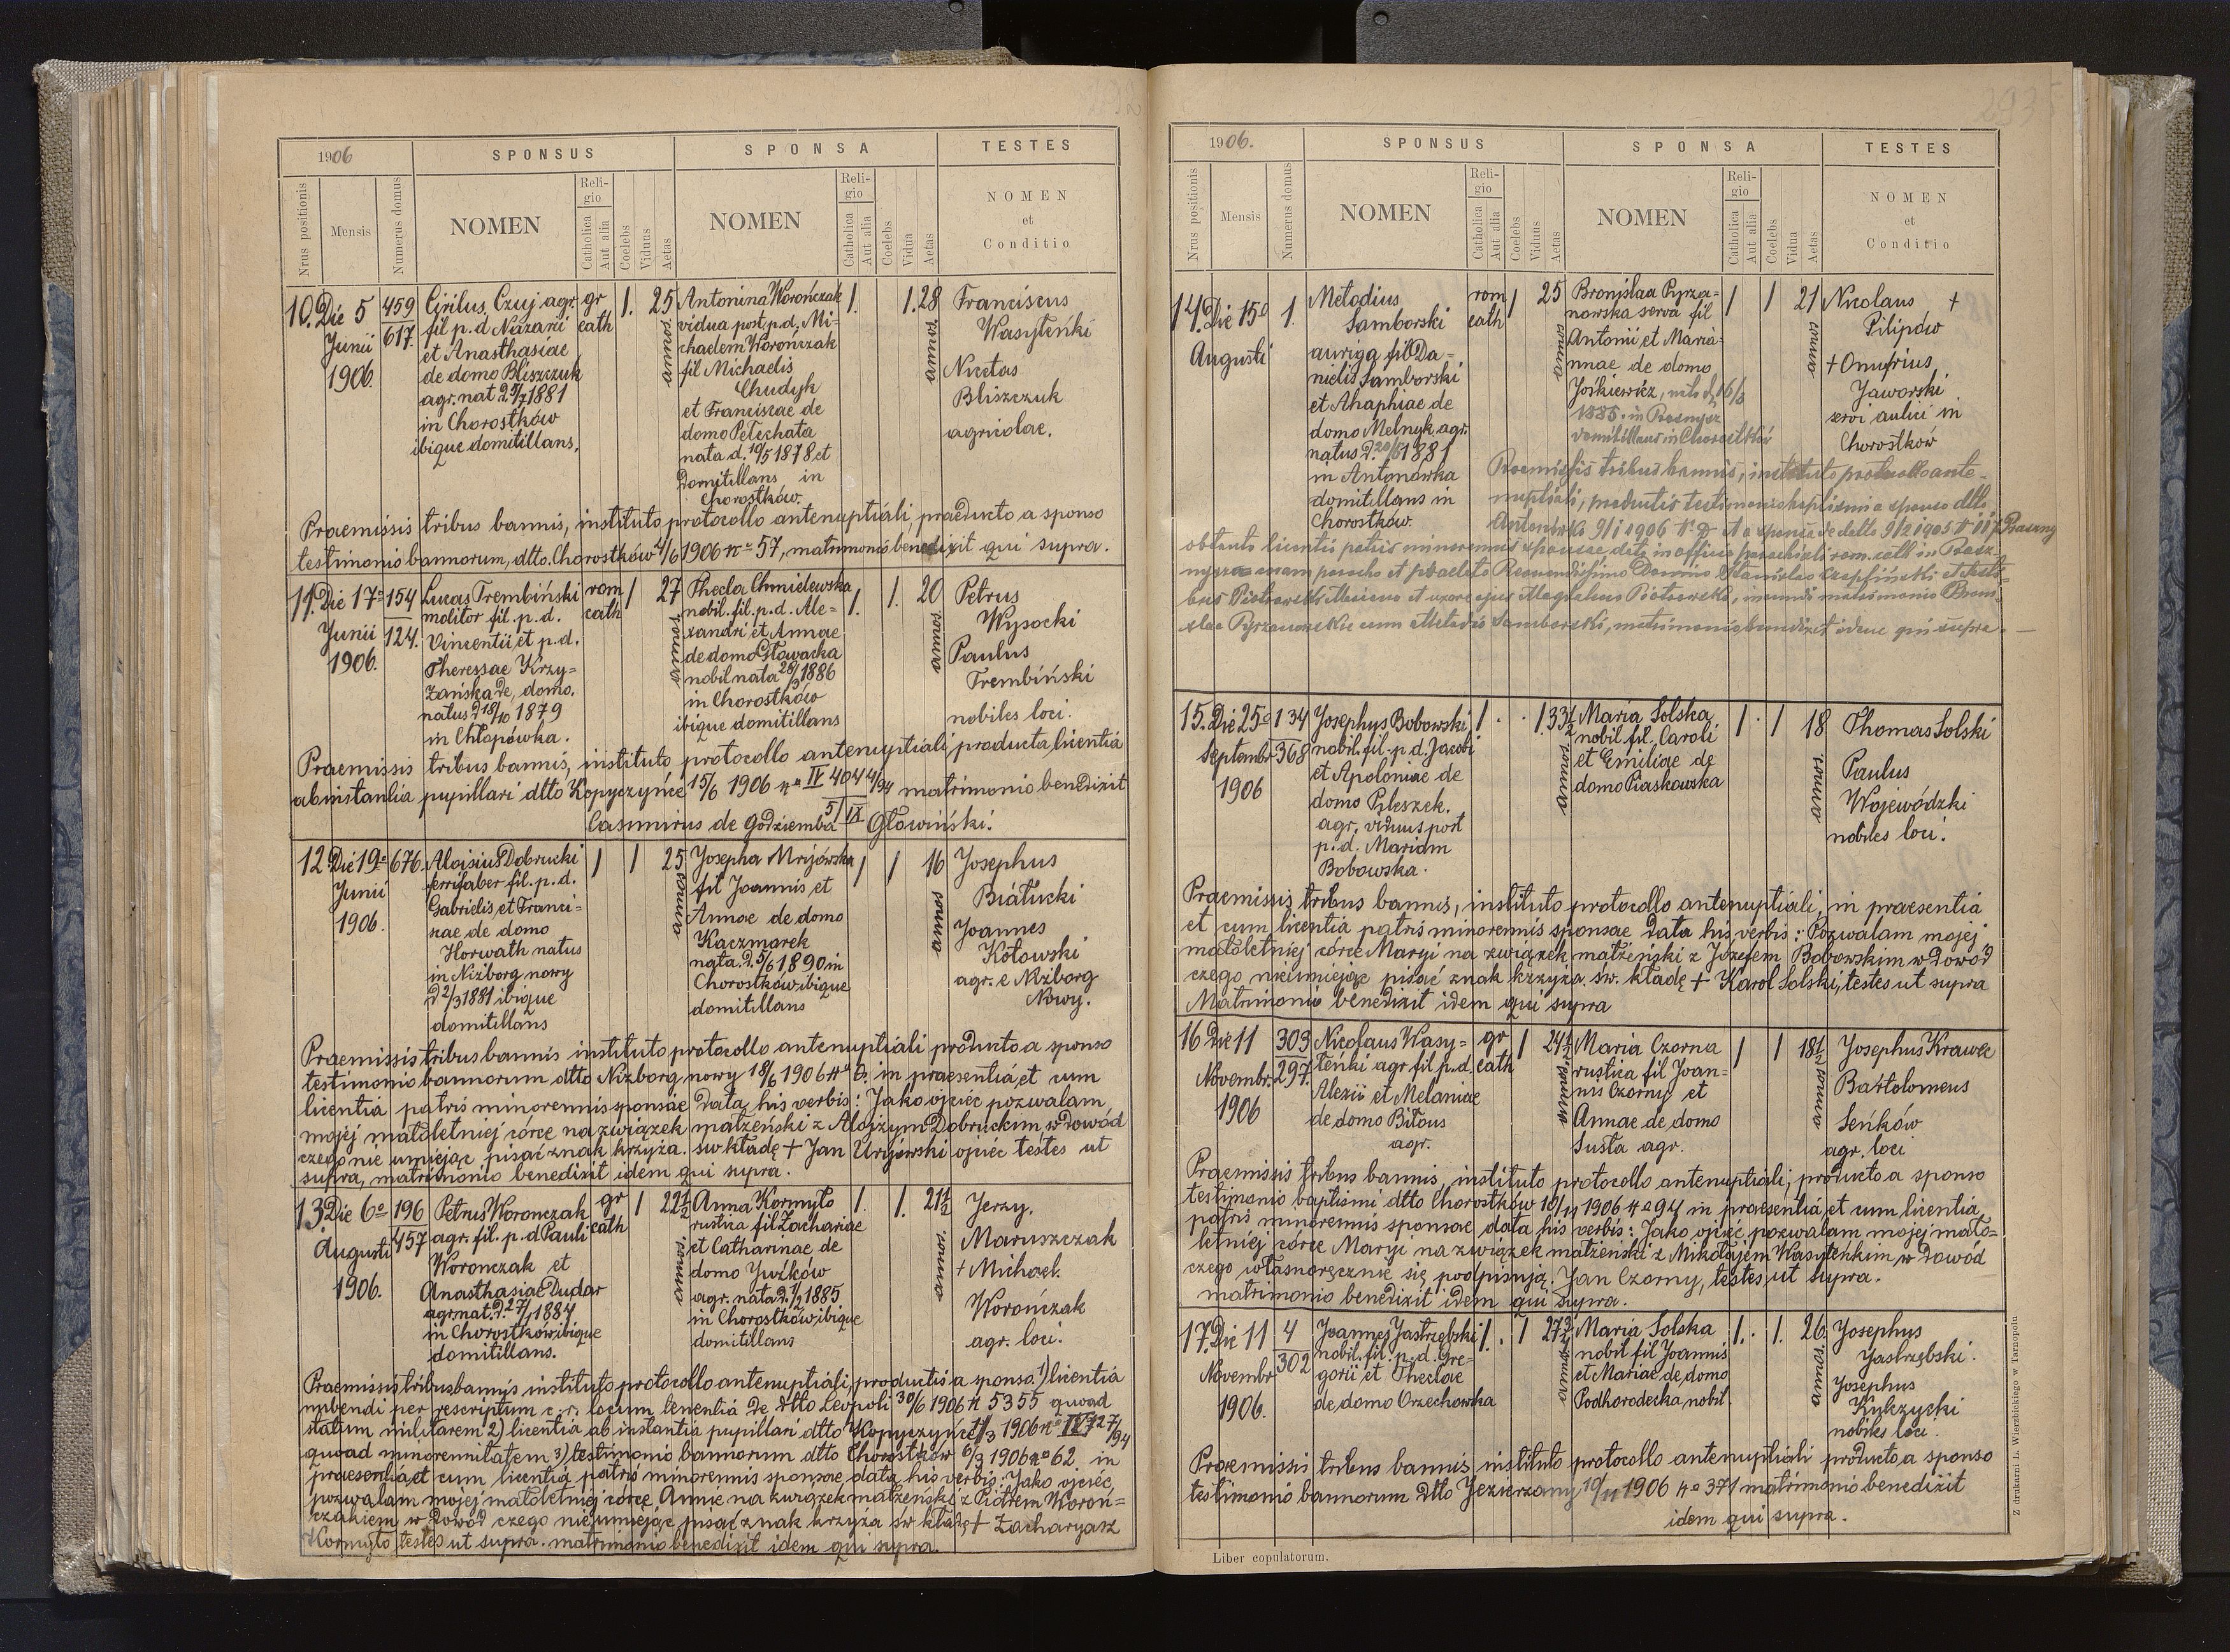 292
1906
SPONSUS
SPONSA
TESTES
Nrus positionis
Mensis
Numerus domus
NOMEN
Religio
Catholica
Aut alia
Coelebs
Viduus
Aetas
NOMEN
Religio
Catholica
Aut alia
Coelebs
Vidua
Aetas
NOMEN
et
Conditio
10. Die 5
Junii
1906.
459
617.
Cirilus Czuj agr.
fil p.d Nazarii
et Anasthasiae
de domo Bliszczuk
agr. nat 24/7 1881
in Chorostków
ibique domitillans.
gr
cath
1.
25
annos
Antonina Worończak
vidua post p.d. Mi-
chaelem Worończak
fil Michaelis
Chudyk
et Franciscae de
domo Pełechata
nata d. 10/5 1878 et
Domitillans in
Chorostków.
1.
1.
28
annos
Franciscus
Wasyleńki
Nicetas
Bliszczuk
agricolae.
Praemissis tribus bannis, instituto protocollo antenuptiali praeducto a sponso
testimonio bannorum, dtto. Chorostków 4/6 1906 no 57, matrimonio benedixit qui supra.
11. Die 17o
Junii
1906.
154
124.
Lucas Trembiński
molitor fil. p. d.
Vincentii et p.d.
Theressae Krzy-
żańska de domo.
natus d 18/10 1879
in Chłopówka.
rom
cath
1
27
annos
Thecla Chmielewska
nobil. fil. p. d. Ale-
xandri et Annae
de domo Głowacka
nobil nata 28/9 1886
in Chorostków
ibique domitillans
1.
1.
20
annos
Petrus
Wysocki
Paulus
Trembiński
nobiles loci.
Praemissis tribus bannis, instituto protocollo antenuptiali producta licentiâ
ab instantia pupillari dtto Kopyczyńce 15/6 1906 no IV 404 4/94 matrimonio benedixit
5/IX
Casimirus de Godziemba Głowiński.
12 Die 19o
Junii
1906.
676.
Aloisius Dobrucki
ferrifaber fil. p. d.
Gabrielis et Franci-
scae de domo
Horwath natus
in Niżborg nowy
d 2/3 1881 ibique
domitillans
1
1
25
annos
Josepha Mrijówska
fil Joannis et
Annae de domo
Kaczmarek
nata. d. 5/6 1890 in
Chorostków ibique
domitillans
1
1
16
annos
Josephus
Białucki
Joannes
Kołowski
agr. e Niżborg
Nowy.
Praemissis tribus bannis instituto protocollo antenuptiali producto a sponso
testimonio bannorum dtto Niżborg nowy 18/6 1906 in praesentiâ et cum
licentiâ patris minorennis sponsae data his verbis: Jako ojciec pozwalam
mojej małoletniej córce na związek małżeński z Alojzym Dobruckim w dowód
czego nie umiejąc pisać znak krzyża. św kładę + Jan ojciec testes ut
supra, matrimonio benedixit idem qui supra.
13 Die 6o
Augusti
1906.
196
457
Petrus Woronczak
agr. fil. p. d Pauli
Woronczak et
Anasthasiae Dudar
agr nat. d. 27/1 1884
in Chorostków ibique
domitillans.
gr
cath
1
22 1/2
annos.
Anna Kormyło
rustica fil Zachariae
et Catharinae de
domo Juźków
agr. nata d. 1/2 1885
in Chorostków ibique
domitillans
1.
1.
21 1/2
annos
Jerzy.
Maruszczak
+ Michael.
Worończak
agr. loci.
Praemissis tribus bannis instituto protocollo antenuptiali, productis a sponso. 1) licentiâ
nubendi per rescriptum c. r. locum tenentiâ de dtto Leopoli 30/6 1906 n 5355 quoad
statum militarem 2) licentiâ ab instantiâ pupillari dtto Kopyczyńce 1906 no
quoad minorennitatem 3) testimonio bannorum dtto Chorostków 6/3 1906 no 62. in
praesentiâ et cum licentiâ patris minorennis sponsae data his verbis: Jako ojciec
pozwalam mojej małoletniej córce Annie na związek małżeński z Piotrem Woroń-
czakiem w dowód czego nieumiejąc pisać znak krzyża św kładę + Zacharyasz
Kormyło testes ut supra. matrimonio benedixit idem qui supra.
293
1906.
SPONSUS
SPONSA
TESTES
Nrus positionis
Mensis
Numerus domus
NOMEN
Religio
Catholica
Aut alia
Coelebs
Viduus
Aetas
NOMEN
Religio
Catholica
Aut alia
Coelebs
Vidua
Aetas
NOMEN
et
Conditio
14. Die 15o
Augusti
1.
Metodius
Samborski
auriga fil Da-
nielis Samborski
et Ahaphiae de
domo Melnyk agr.
natus d. 20/5 1881
in Antonówka
domitillans in
Chorostków.
rom
cath
1
25
annos
Bronislaa Pyrza-
nowska serva fil
Antonii et Maria-
nnae de domo
Jośkiewicz, nata d 16/3
1885. in
domitillans in Chorostków
1
1
21
annos
Nicolaus +
Pilipów
+ Onufrius
Jaworski
servi aulici in
Chorostków
Praemissis tribus bannis, instituto protocollo ante-
nuptiali, productis testimonio baptismi a sponso dtto
Antonówka 9/1 1906 et a sponsa de dtto 9/2 1905
obtenta licentia patris minorennis sponsae, data in officio parochiali rom. cath in
coram parocho et praelato Reverendissimo Domino Stanislao et testi-
bus Piotrowski et uxore ejus Magdalena Piotrowska, ineundi matrimonio Broni-
slae Pyrzanowskie cum Metodio Samborski, matrimonio benedixit idem qui supra. —
15. Die 25o
Septembr
1906
134
368
Josephus Bobowski
nobil. fil. p. d. Jacobi
et Apoloniae de
domo Pyleszek.
agr. viduus post
p. d. Mariam
Bobowska.
1
1
33 1/2
annos
Maria Solska
nobil fil. Caroli
et Emiliae de
domo Piaskowska
1
1
18
annos
Thomas Solski
Paulus
Wojewódzki
nobiles loci.
Praemissis tribus bannis, instituto protocollo antenuptiali, in praesentiâ
et cum licentiâ patris minorennis sponsae data his verbis: Pozwalam mojej
małoletniej córce Maryi na związek małżeński z Józefem Bobowskim w dowód
czego nieumiejąc pisać znak krzyża św. kładę + Karol Solski, testes ut supra
Matrimonio benedixit idem qui supra
16 Die 11
Novembr.
1906
303
297.
Nicolaus Wasy-
leńki agr fil p. d.
Alexii et Melaniae
de domo Bilous
agr.
gr
cath
1
24 1/2
annos
Maria Czorna
rustica fil Joan-
nis Czorny et
Annae de domo
Susta agr.
1
1
18 1/2
annos
Josephus Krawec
Bartolomeus
Seńków
agr. loci
Praemissis tribus bannis, instituto protocollo antenuptiali, producto a sponso
testimonio baptismi dtto Chorostków 10/11 1906 no 94 in praesentiâ et cum licentiâ
patris minorennis sponsae data his verbis: Jako ojciec pozwalam mojej mało-
letniej córce Maryi na związek małżeński z Mikołajem Wasyleńkim w dowód
czego własnoręcznie się podpisuję. Jan Czorny, testes ut supra.
matrimonio benedixit idem qui supra.
17. Die 11
Novembr
1906.
4
302
Joannes Jastrzębski
nobil. fil. p. d. Gre-
gorii et Theclae
de domo Orzechowska
1.
1
27 3/4
annos
Maria Solska
nobil fil Joannis
et Mariae de domo
Podhorodecka nobil.
1.
1.
26.
annos
Josephus
Jastrzębski.
Josephus
Kulczycki
nobiles loci.
Praemissis tribus bannis instituto protocollo antenuptiali producto a sponso
testimonio bannorum dtto Jezierzany 10/11 1906 no 371 matrimonio benedixit
idem qui supra.
Liber copulatorum.
Z drukarni L. Wierzbickiego w Tarnopolu